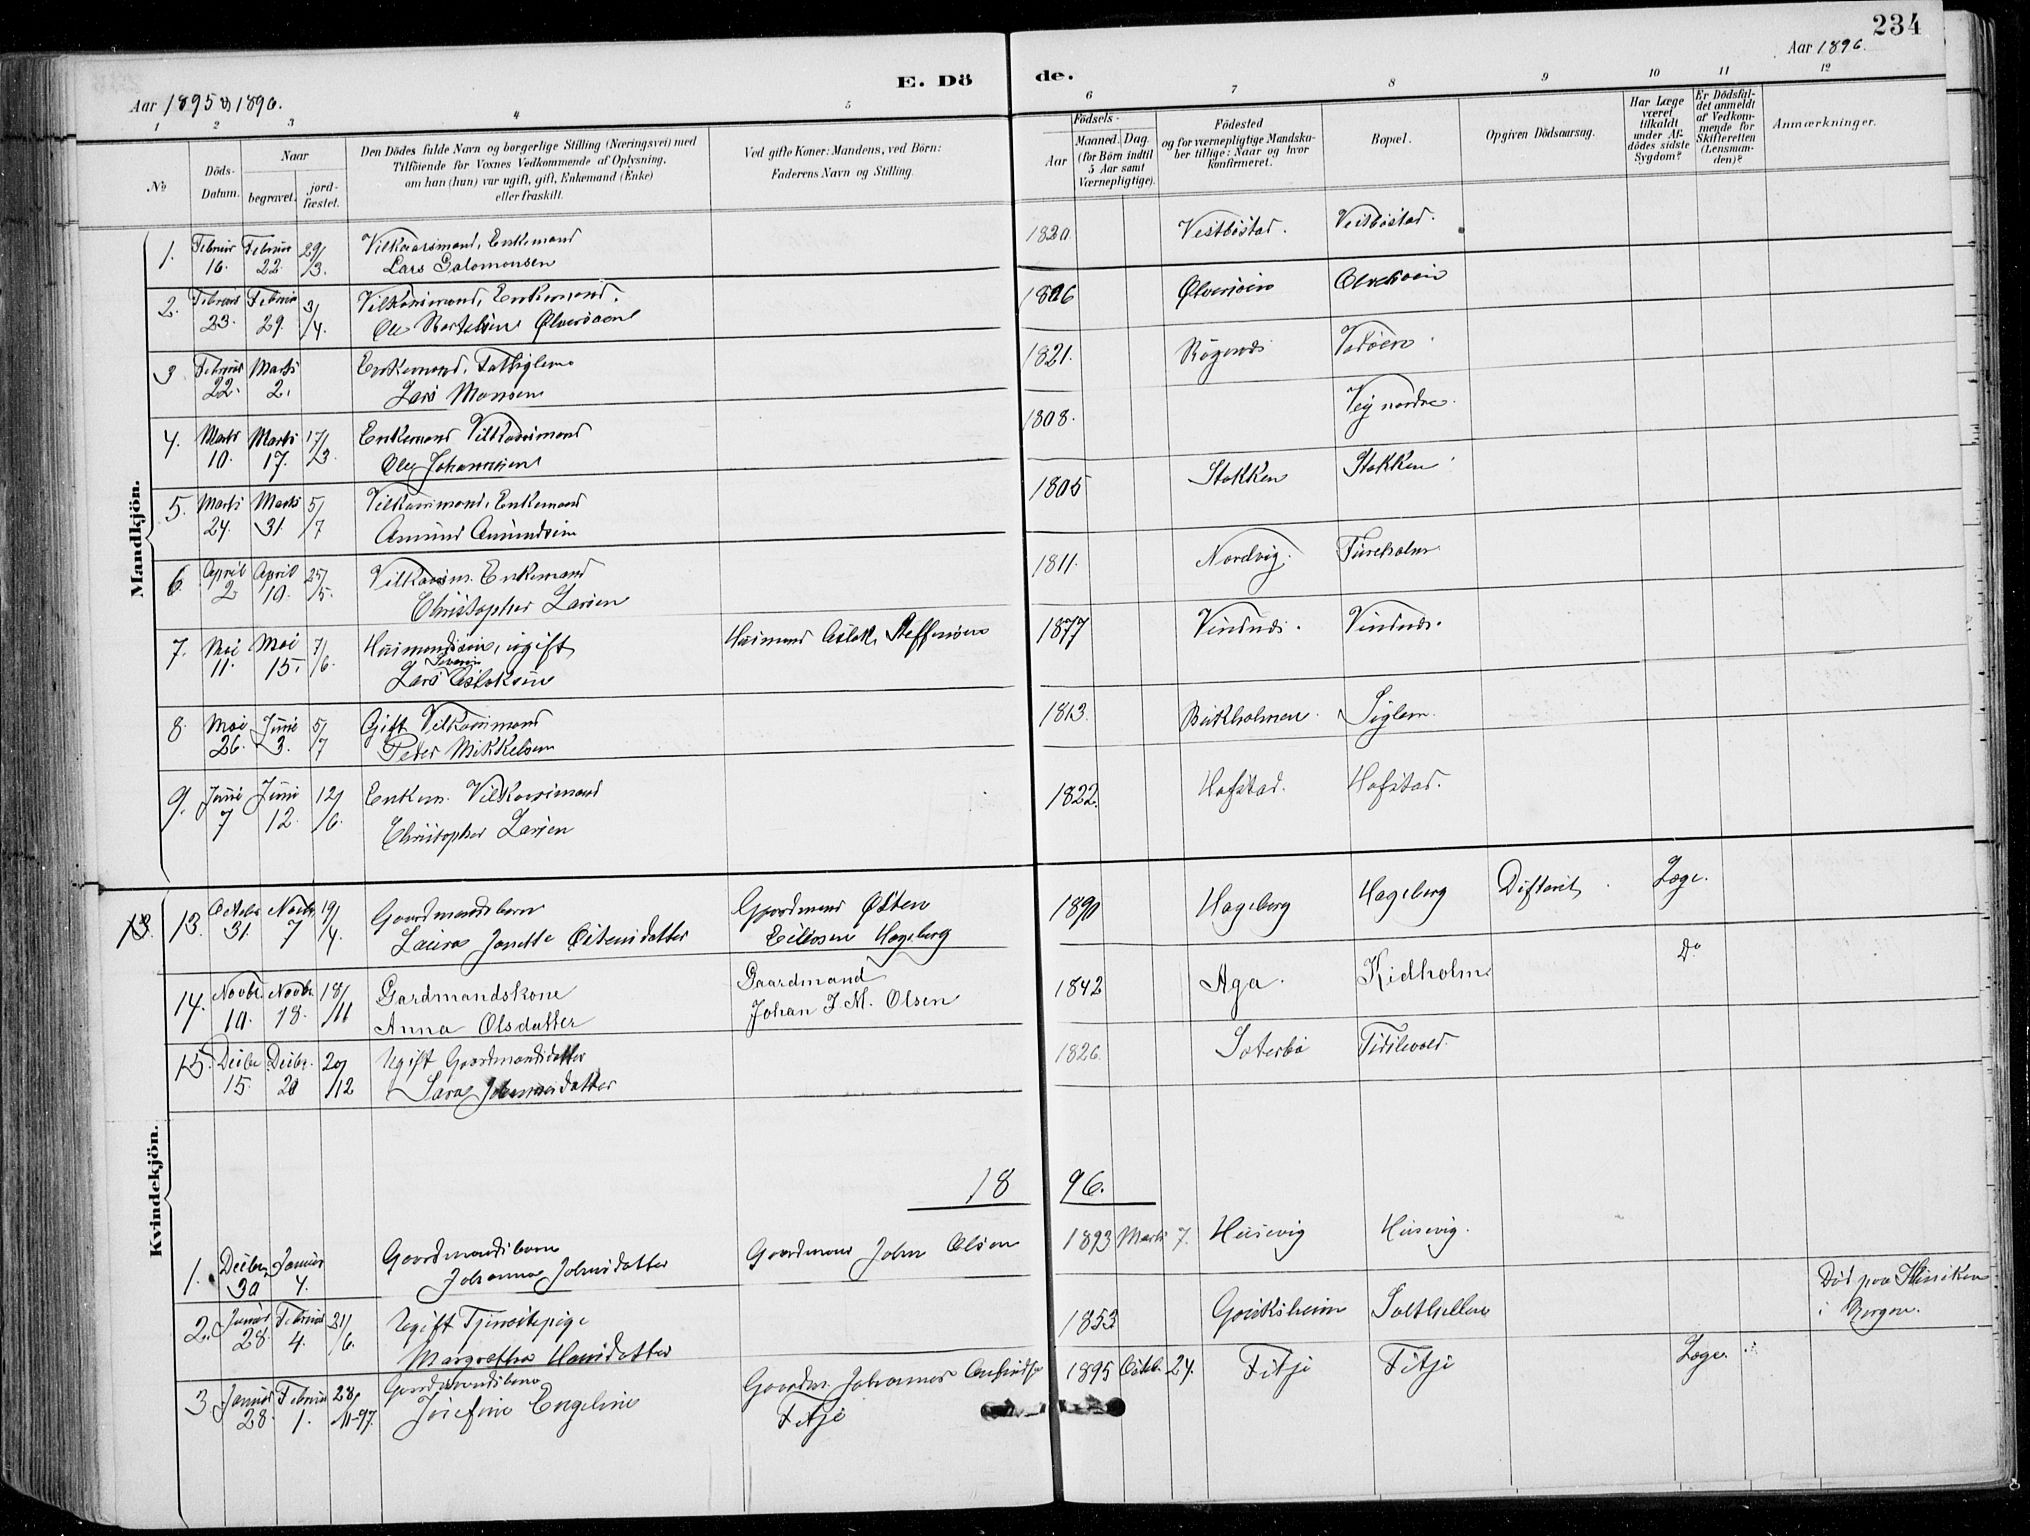 234
Aar 1895 og 1896.
E. Dö
de.
Aar 1896.
1 2 3 4 5 6 7 8 9 10 11 12
№
Döds-Datum.
Naar
begravet.
jord-fæstet.
Den Dödes fulde Navn og borgerlige Stilling (Næringsvei) med
Tilföiende for Voxnes Vedkommende af Oplysning,
om han (hun) var ugift, gift, Enkemand (Enke)
eller fraskilt.
Ved gifte Koner: Mandens, ved Börn:
Faderens Navn og Stilling.
Födsels-
Aar
Maaned. Dag.
(for Börn indtil
5 Aar samt
Værnepligtige).
Födested
og for værnepligtige Mandska-
ber tillige: Naar og hvor
konfirmeret.
Bopæl.
Opgiven Dödsaarsag.
Har Læge
været
tilkaldt
under Af-
dödes sidste
Sygdom?
Er Dödsfal-
det anmeldt
af Vedkom-
mende for
Skifteretten
(Lensman-
den)?
Anmærkninger.
Mandkjön.
1. Februar 16. Februar 22. 29/3. Vilkaarsmand, Enkemand
Lars Salomonsen
1820. Vestböstad. Vestböstad.
2. Februar 23. Februar 29. 3/4. Vilkaarsmand, Enkemand.
Ole Bertelsen Ølversøen
1806 Ølversøen Ølversøen
3. Februar 22. Marts 2. Enkemand, Fattiglem
Lars Monsen
1821.
4. Marts 10. Marts 17. 17/3. Enkemand Vilkaarsmand
Ole Johannesen
1808. nordre.
5. Marts 24. Marts 31. 5/7 Vilkaarsmand, Enkemand
Amund Amundsen
1805 Stokken Stokken
6. April 2 April 10. 25/5. Vilkaarsm. Enkemand
Christopher Larsen
1811. Nordvig.
7. Mai 11. Mai 15. 7/6. Husmandssön, ugift
Lars Severin Aslaksen
Husmand Aslak Steffensen
1877 Vindnes. Vindnes.
8. Mai 26. Juni 3. 5/7 Gift Vilkaarsmand
Peder Mikkelsen
1813. Birkholmen. Siglen.
9. Juni 7 Juni 12. 12/6. Enkem. Vilkaarsmand
Christopher Larsen
1822. Hofstad. Hofstad.
Kvindekjön.
13. 13. Octobr 31. Novbr. 7 19/4. Gaardmandsbarn
Laura Janette Østensdatter
Gaardmand Østen
Eilersen Hageberg
1890 Hageberg Hageberg Difterit. Læge.
14. Novbr. 10. Novbr. 18. 18/11 Gardmandskone
Anna Olsdatter
Gaardmand
Johan J. M. Olsen
1842 Aga. Kidholm. Do
15. Decbr 15. Decbr. 20 20/12 Ugift Gaardmandsdatter
Sara Johannesdatter
1826. Sæterbø
18 96.
1. Decbr. 30 Januar 4. Gaardmandsbarn
Johanna Johnsdatter
Gaardmand John Olsen
1893 Marts 7. Husevig Husevig.
2. Januar 28. Februar 4. 21/6. Ugift Tjenestepige
Margretha Hansdatter
1853 Gouksheim Salthellen
Død paa Kliniken
i Bergen.
3. Januar 28. Februar 1. 28/11-97. Gaardmandsbarn
Josefine Engeline
Gaardm. Johannes
Fitje
1895 Octbr. 24. Fitje Fitje Læge.